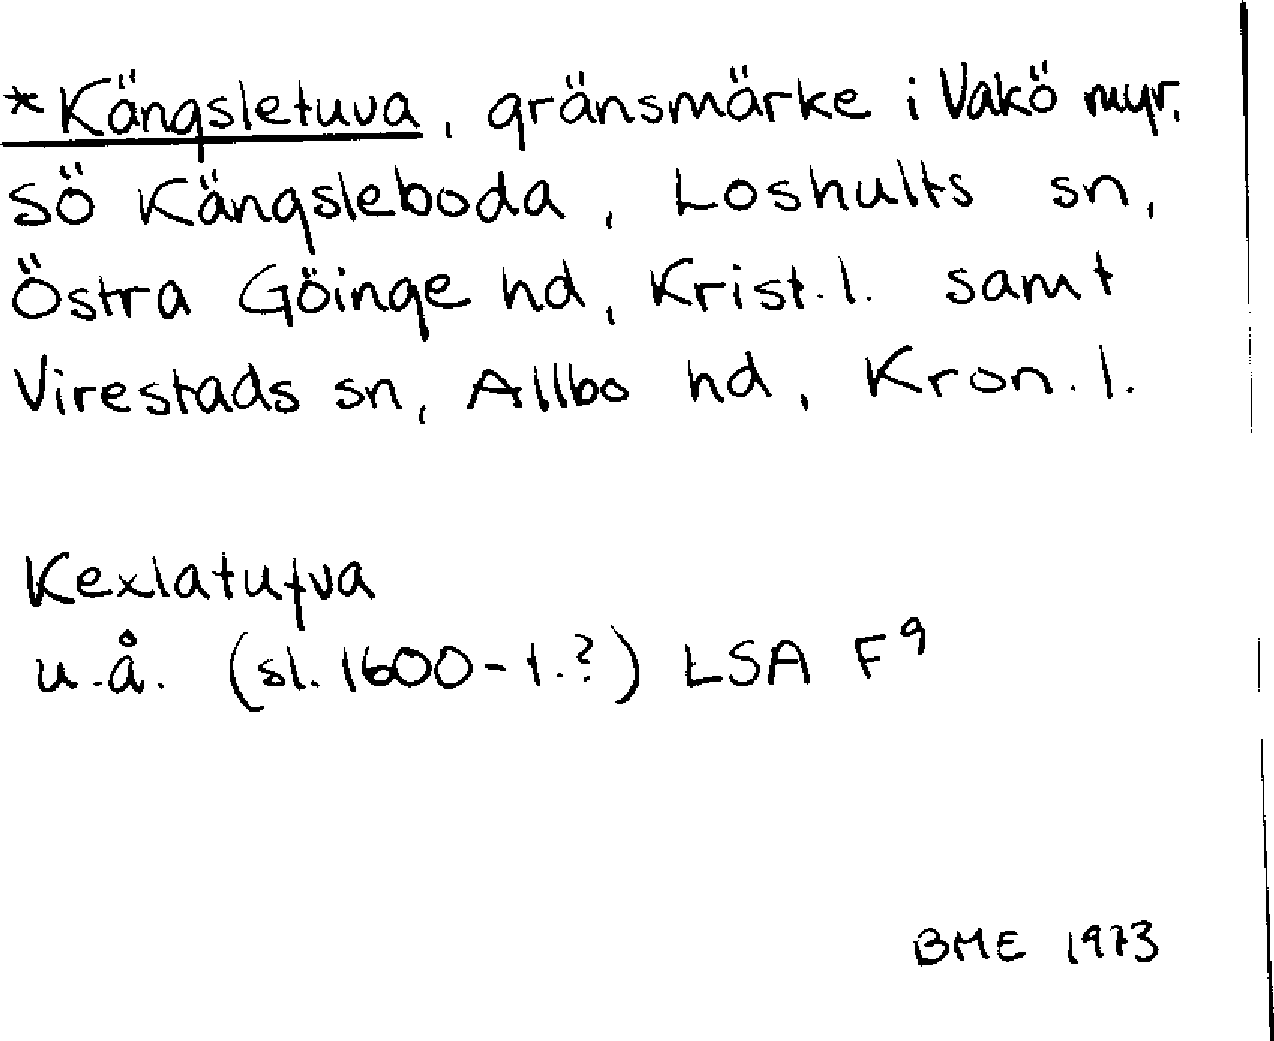 *Kängsletuva, gränsmärke i Vakö myr.
sö Kängsleboda, Loshults sn,
Östra Göinge hd, Krist. l. samt
Virestads sn, Allbo hd, Kron. l.
Kexlatufva
u.å. (sl. 1600-t.?) LSA F9
BME 1973